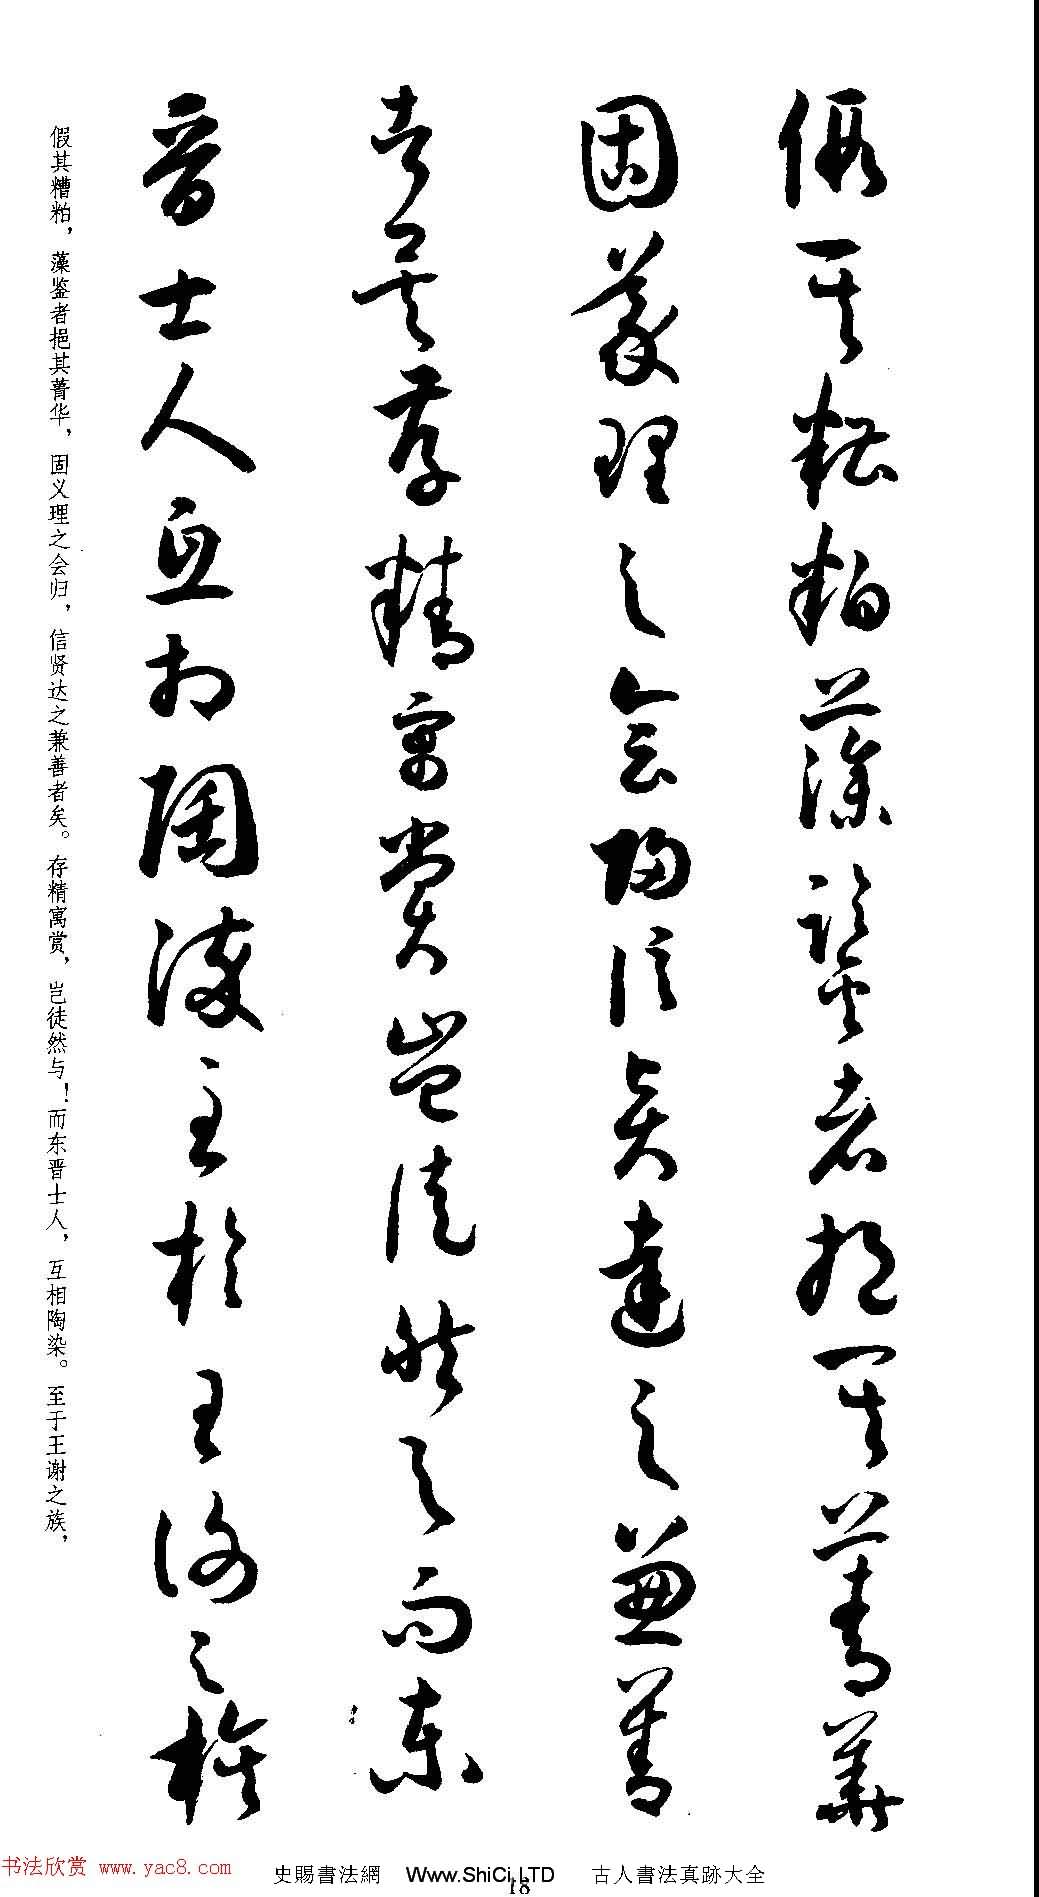 假其糟粕藻鑒者挹其菁華
固義理之會歸信賢達之兼善
者矣存精寓賞豈徒然與而東
晉士人互相陶染至於王謝之族
假其糟粕，藻鉴者挹其菁华，固义理之会归，信贤达之兼善者矣。存精寓赏，岂徒然与！而东晋士人，互相陶染。至于王谢之族，
书法欣赏 www.yac8.com
史賜書法網 Www.ShiCi.LTD 古人書法真跡大全
18